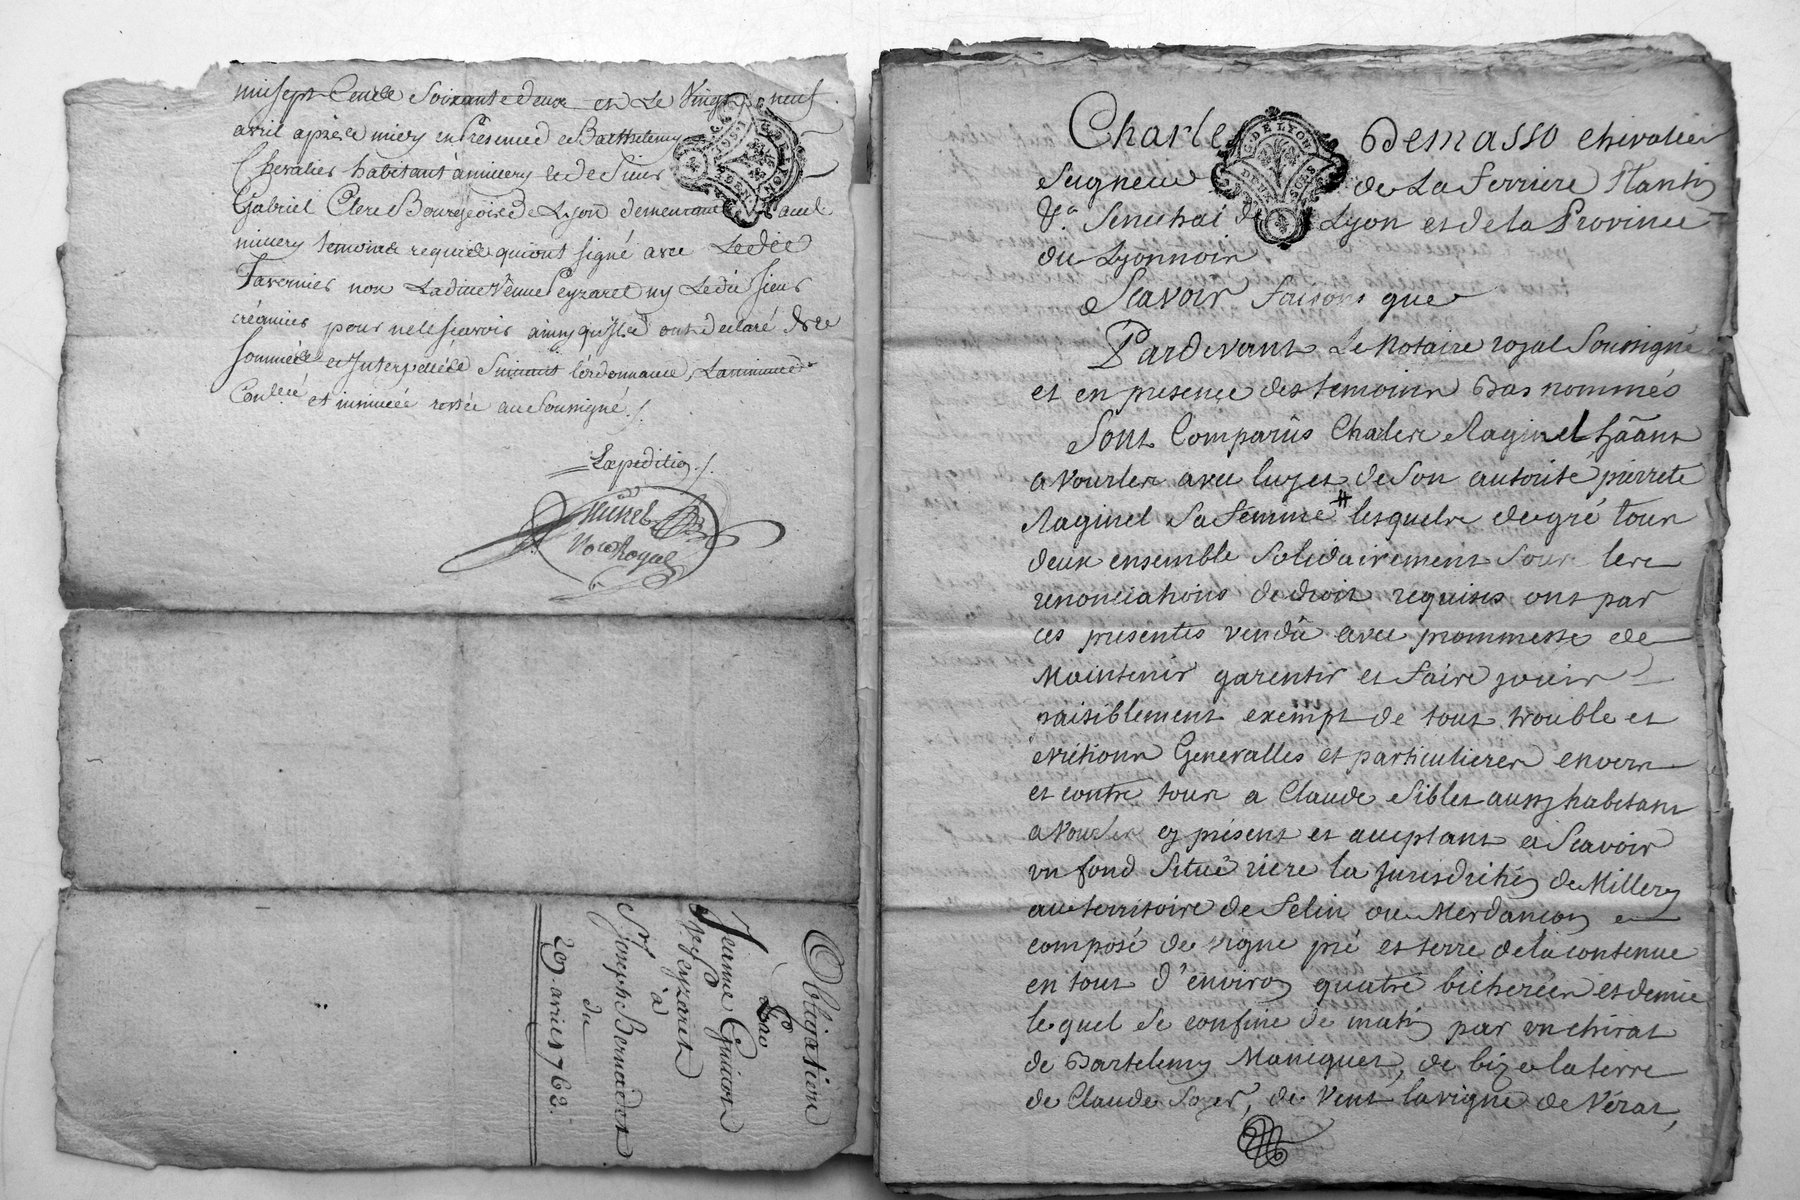 mil sept Cents Soixante deux et Le Vingt neuf
avril après midy en Présence de Barthelemy
Chevalier habitant à millery et de Sieur
Gabriel Clerc Bourgeois de Lyon demeurant aud
millery témoins requis qui ont signé avec Ledit
Tavernier non Ladite Veuve Peyzaret ny Ledit Sieur
créancier pour ne le scavoir ainsy qu'ils ont declaré de ce
sommés et Interpellés Suivant l'ordonnance, La minute
Conllée et insinuée restée au Soussigné ./.
Expedition ./.
Not Royal
G. DE LYON
DEN
Obligation
Par
Jeanne Guicot
Ve Peyzaret
à
Sr Joseph Bernadot
du
29 avril 1762.
Charles Demasso chevalier
Seigneur de La Ferriere Plantin
Senechal de Lyon et de la Province
du Lyonnois
Scavoir faisons que
Pardevant Le Notaire royal Soussigné
et en presence des temoins Bas nommés
Sont Comparûs Charles Raginel hãant
a Vourles avec luy et de Son autorité pierrete
Raginel Sa Femme # lesquels de gré tous
deux ensemble Solidairement Sous les
renonciations de droit requises ont par
ces presentes vendû avec prommesse de
Maintenir garentir et faire jouir
paisiblement exempt de tout trouble et
evictions Generalles et particulieres envers
et contre tous a Claude Siblet aussy habitant
a Vourles cy présent et aceptant a Scavoir
un fond Situé riere la jurisdiction de Millery
au territoire de Selin ou Merdançon
composé de vigne pré et terre de la contenue
en tout d'environ quatre bicherées et demie
lequel Se confine de matin par un chirat
de Bartelemy Maniquet, de bize la terre
de Claude Soyer, de Vent la vigne de Vérat,
G. DE LYON
DEUX SOLS